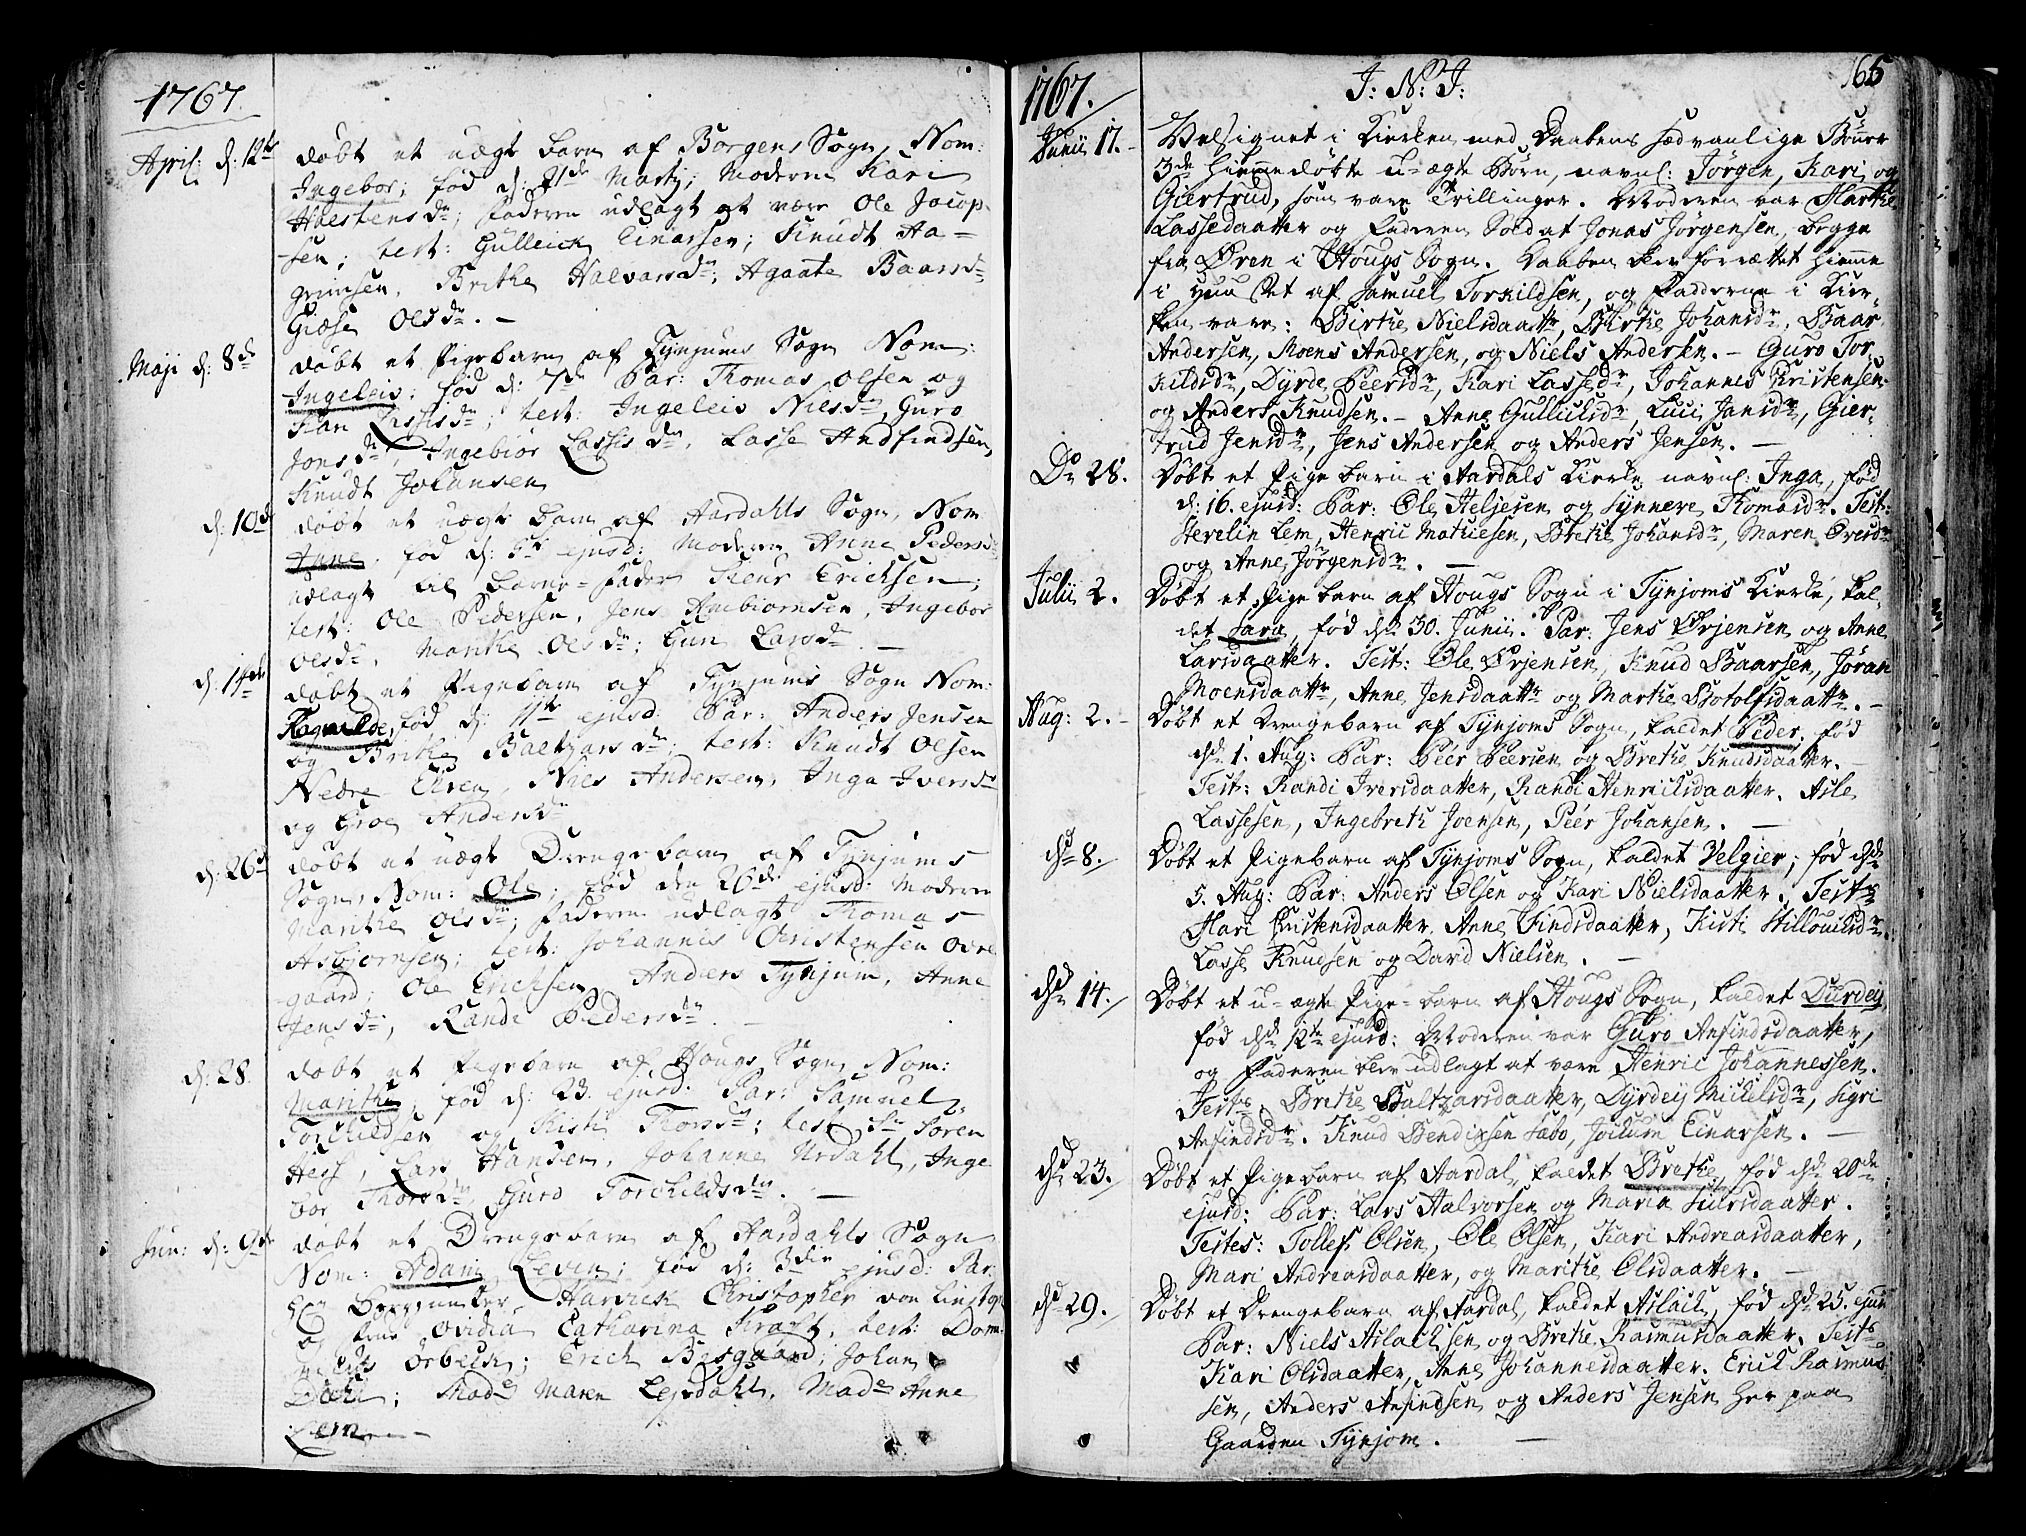 1767.
April: d: 12te døbt et uægt barn af Borgens Sogn, Nom:
Ingebor; fød d: 21de Martij; Moderen Kari
Holstensdr; faderen udlagt at være Ole Jocop-
sen; test: Gulleich Einarsen; Knudt Aa-
grimsen, Brithe Halvarsdr; Agaate Baarsdr
Giøse Olsdr. –
Maji d: 8de døbt et Pigebarn af Tynjums Sogn Nom:
Ingeleis; fød d: 7de Par: Thomas Olsen og
Kari Lassisdr; test: Ingeleis Nielsdr, Guro
Jonsdr, Ingebior Lassisdr, Lasse Andfindsen,
Knudt Johansen
d: 10de døbt et uægt barn af Aardahls Sogn, Nom:
Anne fød d: 5te ejusd: Moderen Anne Pedersdr
udlagt til barne-fader Erichsen;
test: Ole Pedersen, Jens Anbiørnsen, Ingebor
Olsdr, Marithe Olsdr; Guri Larsdr. –
d: 14de døbt et Pigebarn af Tynjums Sogn Nom:
Ragnilde, fød d: 11te ejusd: Par: Anders Jensen
og Brithe Baltzarsdr; test: Knudt Olsen
Nedre Eren, Niels Andersen, Inga Iversdr
og Groe Andersdr
d: 26de døbt et uægt Drengebarn af Tynjums
Sogn, Nom: Ole; fød den 26de ejusd: Moderen
Marithe Olsdr; faderen udlagt Thomas
Asbiørnsen; test: Johannis Christensen Øvre-
gaard; Ole Erichsen, Anders Tynjum, Anne
Jensdr, Rande Pedersdr. –
d: 28. døbt et Pigebarn af Hougs Sogn Nom:
Marithe, fød d: 23. ejusd: Par: Samuel
Torchildsen og Kisti Thorsdr; test: Sr Søren
Hess, Lars Hansen, Johanne Urdahl, Inge
bor Thorsdr, Guro Torchildsdr. –
Jun: d: 9de døbt et Drengebarn af Aardahls Sogn
Nom: Adam Leven; fød d: 3die ejusd: Par:
Hr Bergmester Harvich Christopher von Linstop
og frue Ovidia Catharina Kraft, test: Dom:
Niels Ørbech; Erich Bisgaard; Johan
Dahl; Made Maren Leirdahl, Made Anne
Lem. –
165
1767. J: N: J:
Junii 17. – Velsignet i Kierken med Daabens sædvanlige Bønner
3de hiemmedøbte u-ægte Børn, navnl: Jørgen, Kari og
Giertrud, som vare Trillinger. Moderen var Marthe
Lassedaatter og Faderen Soldat Jonas Jørgensen, begge
fra Øren i Hougs Sogn. Daaben blev forrættet hiemme
i Huuset af Samuel Torkildsen, og Fadderne i Kier-
ken vare: Birthe Nielsdaattr, Birthe Johansdr, Baar
Andersen, Moens Andersen, og Niels Andersen. – Guro Tor-
kildsdr, Dyrde Peersdr, Kari Lassedr, Johannes Christensen
og Anders Knudsen. – Anne Gullicksdr, Luci Jansdr, Gier-
trud Jensdr, Jens Andersen og Anders Jensen. –
Do 28. Døbt et Pigebarn i Aardals Kierke, navnl: Inga, fød
d: 16. ejusd: Par: Ole Heljesen og Synneve Thomasdr. Test:
Severin Lem, Henric Mathiesen, Brethe Johansdr, Maren Iversdr
og Anne Jørgensdr. –
Julii 2. Døbt et Pigebarn af Hougs Sogn i Tynjoms Kierke, kal-
det Sara, fød d: 30. Junii. Par: Jens Ørjensen og Anne
Larsdaatter. Test: Ole Ørjensen, Knud Baarsen, Jøran
Moensdaattr, Anne Jensdaattr og Marthe Botolfsdaattr. –
Aug: 2. – Døbt et Drengebarn af Tynjoms Sogn, kaldet Peder, fød
d: 1. Aug: Par: Peer Peersen og Brethe Knudsdaatter. –
Test: Randi Iversdaatter, Randi Henricksdaatter. Asle
Lassesen, Ingebreth Joensen, Peer Johansen. –
d: 8. Døbt et Pigebarn af Tynjoms Sogn, kaldet Velgier; fød d:
5. Aug: Par: Anders Olsen og Kari Nielsdaatter. Tests
Mari Christensdaatter, Anne Findsdaatter, Kisti
Lasse Knudsen og David Nielsen. –
d: 14. Døbt et u-ægte Pige-barn af Hougs Sogn, kaldet Durdey
fød d: 12te ejusd: Moderen var Guro Anfindsdaatter,
og Faderen blev udlagt at være Henric Johannessen.
Tests. Brethe Baltzarsdaatter, Dyrdey Mickelsdr, Sigri
Anfindsdr. Knud Bendixsen Sæbo, Joslum Einarsen. –
d: 23. Døbt et Pigebarn af Aardal, kaldet Brethe, fød d: 20de
ejusd: Par: Lars Halvorsen og Maria Siursdaatter.
Testes: Tollef Olsen, Ole Olsen, Kari Andreasdaatter,
Mari Andreasdaatter, og Marithe Olsdaatter. –
d: 29. Døbt et Drengebarn af Aardal, kaldet Aslach, fød d: 25. ejusd
Par: Niels Aslachsen og Brethe Rasmusdaatter. Tests
Kari Olsdaatter, Anne Johannesdaatter. Erick Rasmus-
sen, Anders Anfindsen og Anders Jensen her paa
Gaarden Tynjom. –